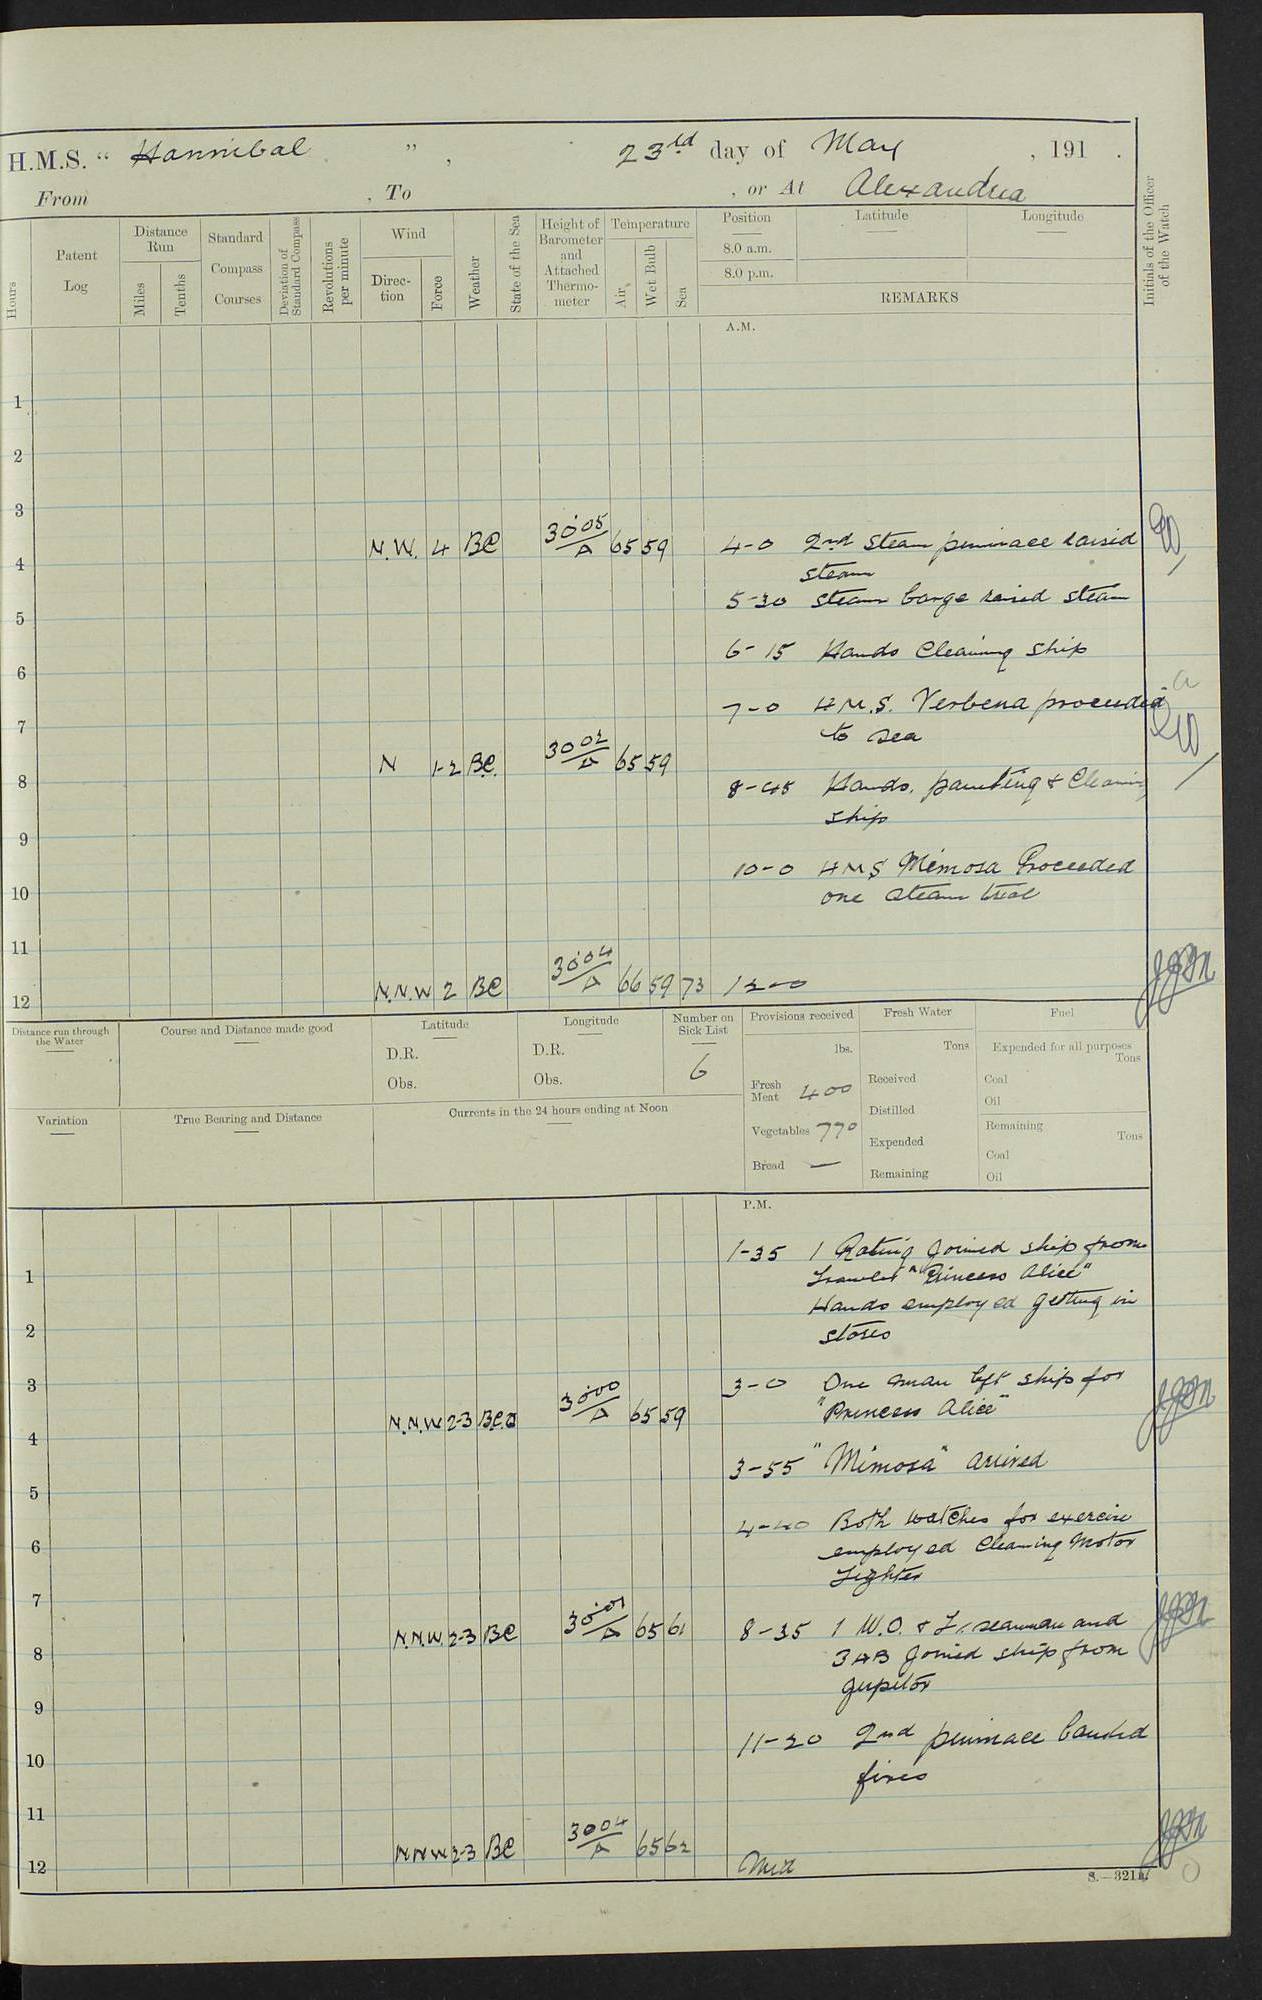 H.M.S. " Hannibal " , 23rd day of May , 191 .
From , To , or At Alexandria
Hours
Patent Log
Distance Run
Miles
Tenths
Standard Compass Courses
Deviation of Standard Compass
Revolutions per minute
Wind
Direction
Force
Weather
State of the Sea
Height of Barometer and Attached Thermometer
Temperature
Air
Wet Bulb
Sea
Position
8.0 a.m.
8.0 p.m.
Latitude
Longitude
REMARKS
Initials of the Officer of the Watch
A.M.
1
2
3
4 N.W. 4 BC 30.05/A 65 59 4-0 2nd Steam pinnace raised
steam
5 5-30 Steam barge raised steam
6 6-15 Hands Cleaning Ship
7 7-0 H.M.S. Verbena proceeded
to sea
8 N 1-2 BC. 30 02/A 65 59
8-45 Hands, painting & Cleaning
ship
9
10 10-0 H M S Mimosa Proceeded
one steam trial
11
12 N.N.W 2 BC 30.04/A 66 59 73 12-0
Distance run through the Water
Course and Distance made good
Latitude
D.R.
Obs.
Longitude
D.R.
Obs.
Number on Sick List
6
Provisions received
lbs.
Fresh Meat 400
Vegetables 770
Bread —
Fresh Water
Tons
Received
Distilled
Expended
Remaining
Fuel
Expended for all purposes
Tons
Coal
Oil
Remaining
Tons
Coal
Oil
Variation
True Bearing and Distance
Currents in the 24 hours ending at Noon
P.M.
1 1-35 1 Rating joined ship from
Trawler "Princess Alice"
Hands employed getting in
stores
2
3 3-0 One man left ship for
"Princess Alice"
4 N.N.W 2-3 30.00/A 65 59
3-55 "Mimosa" arrived
5
6 4-40 Both watches for exercise
employed Cleaning Motor
Lighter
7
8 N.N.W. 2-3 BC 30.01/A 65 61 8-35 1 W.O. & seaman and
3 AB joined ship from
Jupitor
9
10 11-20 2nd pinnace banked
fires
11
12 N N W 2-3 BC 30 04/A 65 62 Mid
S.—321